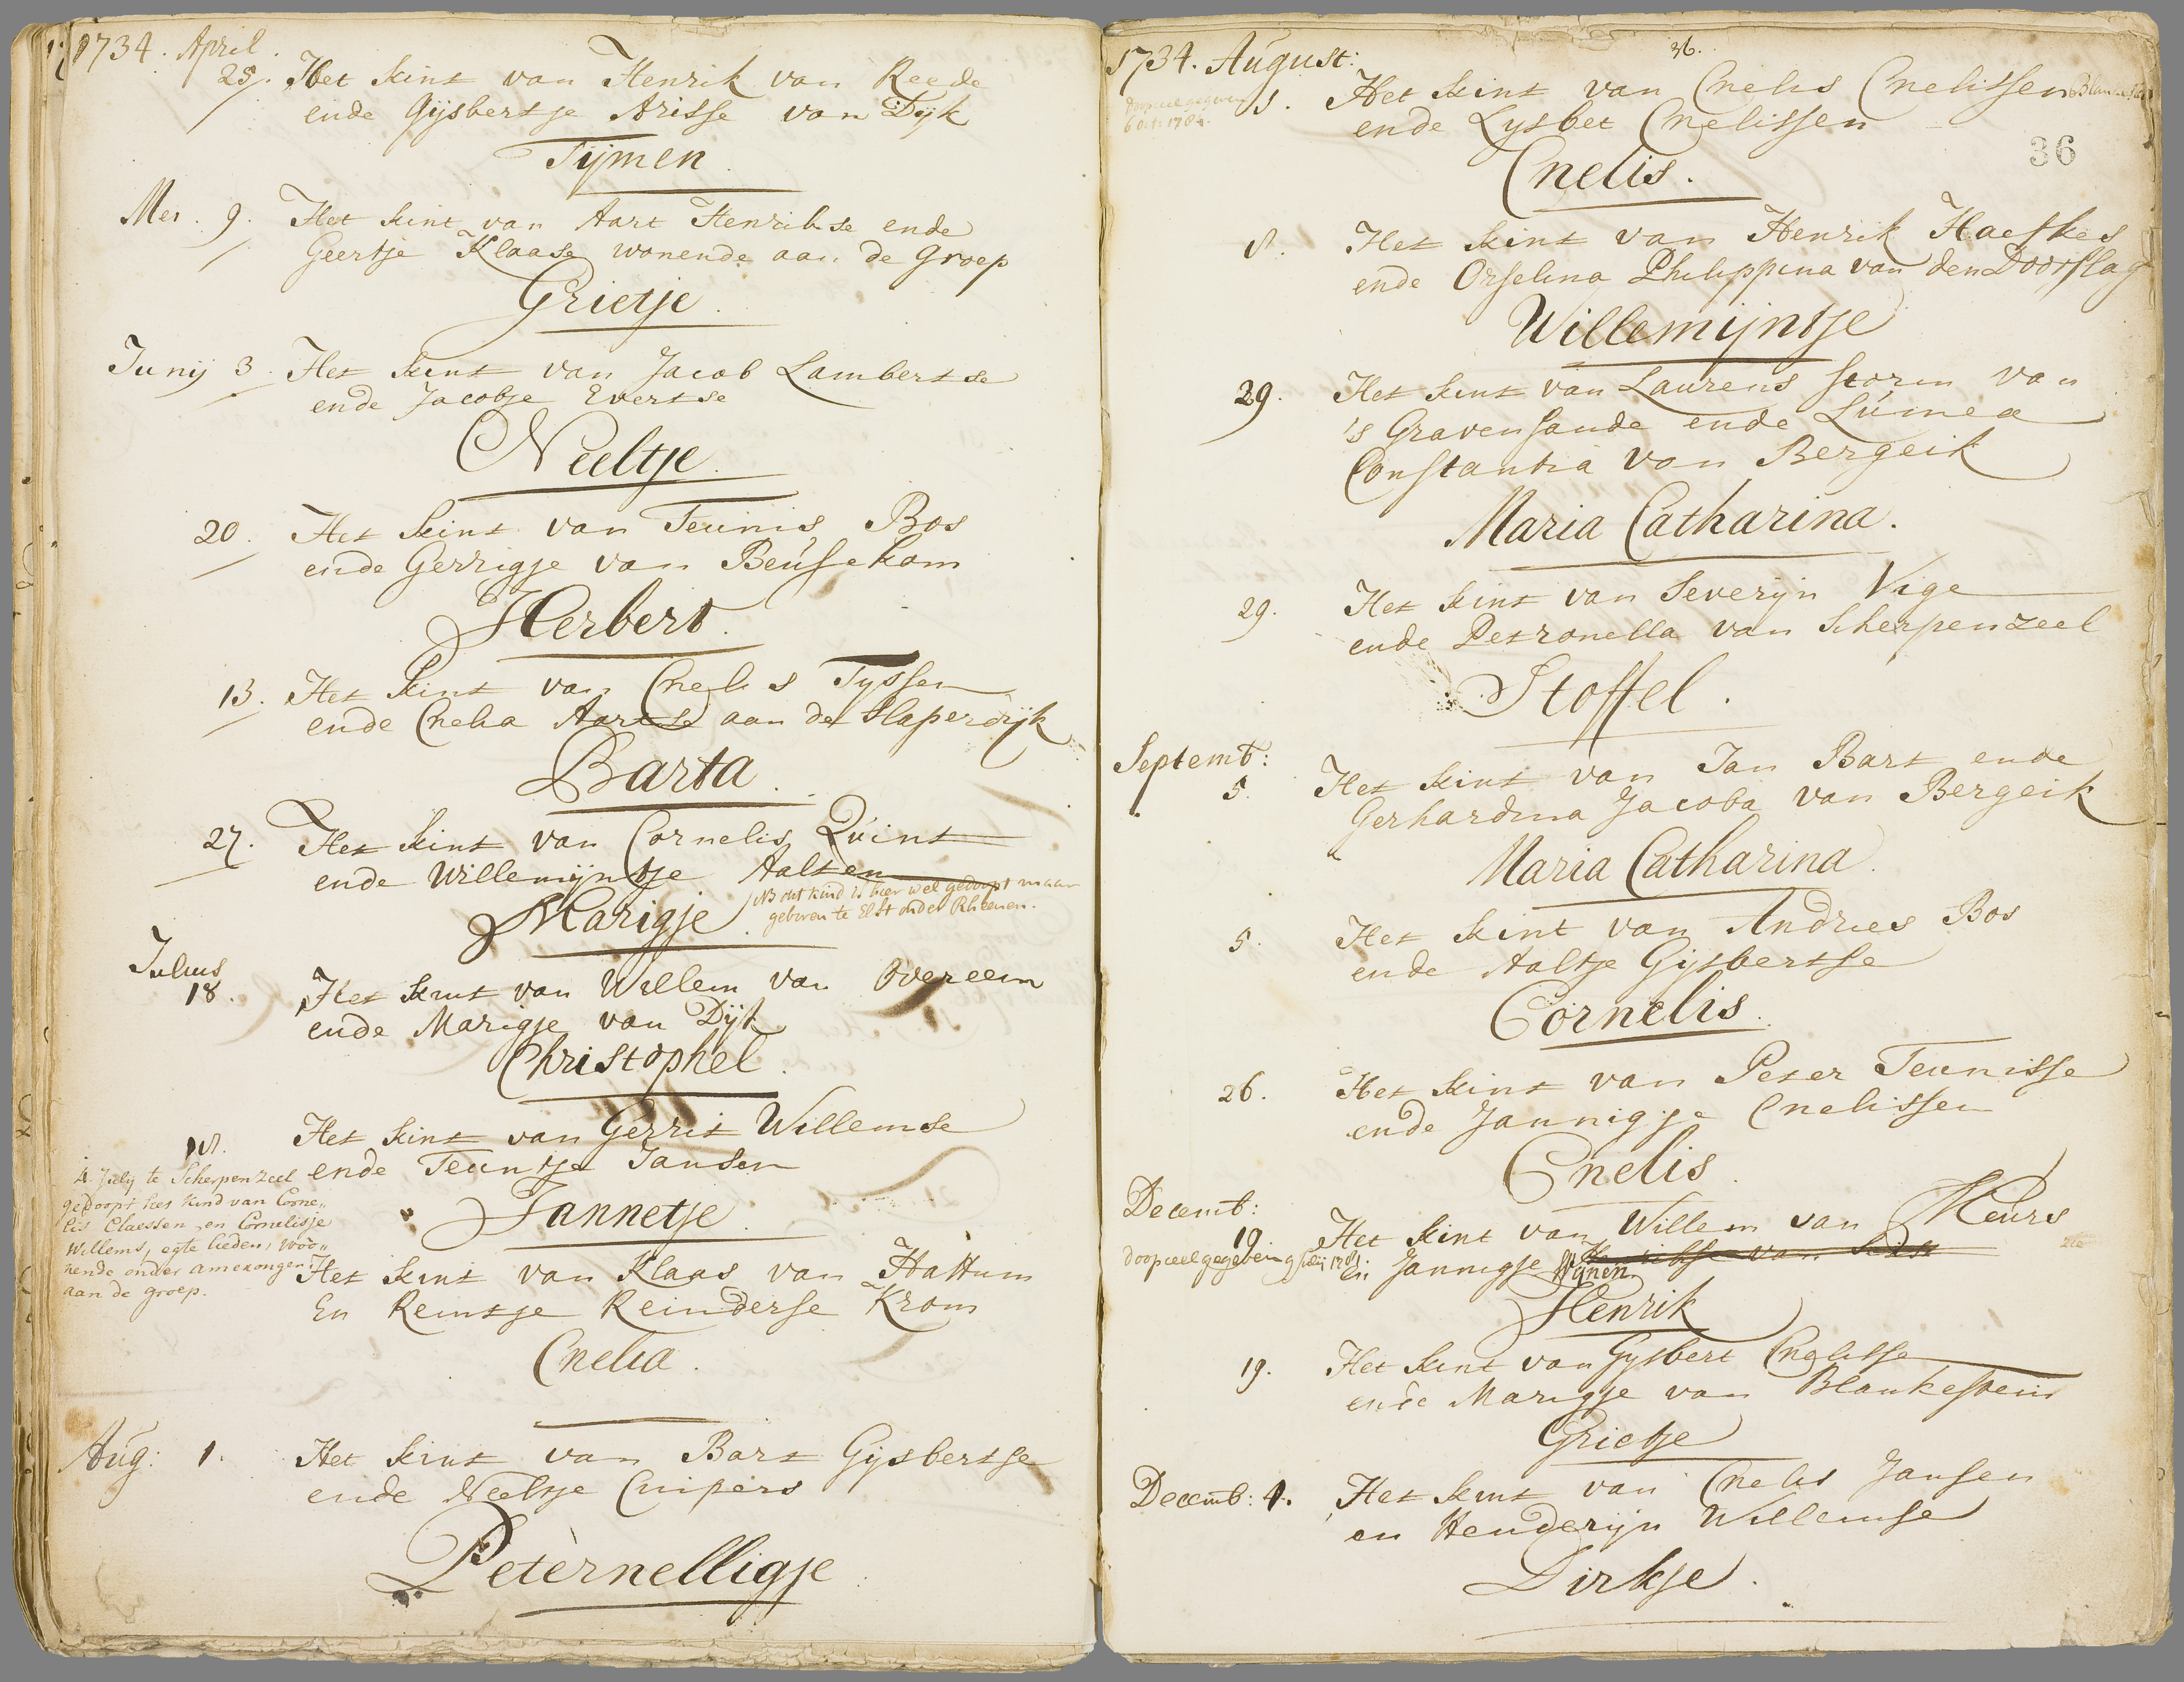 1734. April.
25. Het kint van Henrik van Reede
ende Gijsbertje Arisse van Dijk
Tijmen.
Mei. 9. Het kint van Aart Henrikse ende
Geertje Klaase wonende aan de Groep
Grietje.
Junij 3. Het kint van Jacob Lambertse
ende Jacobje Evertse
Neeltje.
20. Het kint van Teunis Bos
ende Gerrigje van Beusekom
Herbert.
13. Het kint van Cnelis Tyssen
ende Cnelia Aartse aan de Slaperdijk
Barta.
27. Het kint van Cornelis Quint
ende Willemijntje Aalten
Marigje.
NB dit kind is hier wel gedoopt maar
geboren te Elst onder Rheenen.
Julius
18. Het kint van Willem van Overeem
ende Marigje van Dijk
Christophel.
Het kint van Gerrit Willemse
ende Teuntje Jansen
Jannetje.
4 July te Scherpenzeel
gedoopt het kind van Corne„
lis Claessen en Cornelisje
Willems, egte lieden, woo„
nende onder Amerongen
aan de groep.
Het kint van Klaas van Hattum
En Reintje Reinderse Krom
Cnelia.
Aug: 1. Het kint van Bart Gijsbertse
ende Neeltje Cuipers
Peternelligje.
1734. August:
36.
36
doopceel gegeven
6 oct. 1784.
8. Het kint van Cnelis Cnelissen
ende Lysbet Cnelissen
Cnelis.
8. Het kint van Henrik Haefkes
ende Orselina Philippina van den Doorslag
Willemijntje
29. Het kint van Laurens Storm van
's Gravensande ende Lumea
Constantia van Bergeik
Maria Catharina.
29. Het kint van Severijn Vige
ende Petronella van Scherpenzeel
Stoffel.
Septemb:
5. Het kint van Jan Bart ende
Gerhardina Jacoba van Bergeik
Maria Catharina.
5. Het kint van Andries Bos
ende Aaltje Gijsbertse
Cornelis.
26. Het kint van Peter Teunisse
ende Jannigje Cnelissen
Cnelis.
Decemb:
19. Het kint van Willem van Meurs
doopceel gegeven 9 July 1781.
En Jannigje Wijnen
Henrik
19. Het kint van Gysbert Cnelisse
ende Marigje van Blankestein
Grietje
Decemb: 1. Het kint van Cnelis Jansen
en Henderijn Willemse
Dirkje.